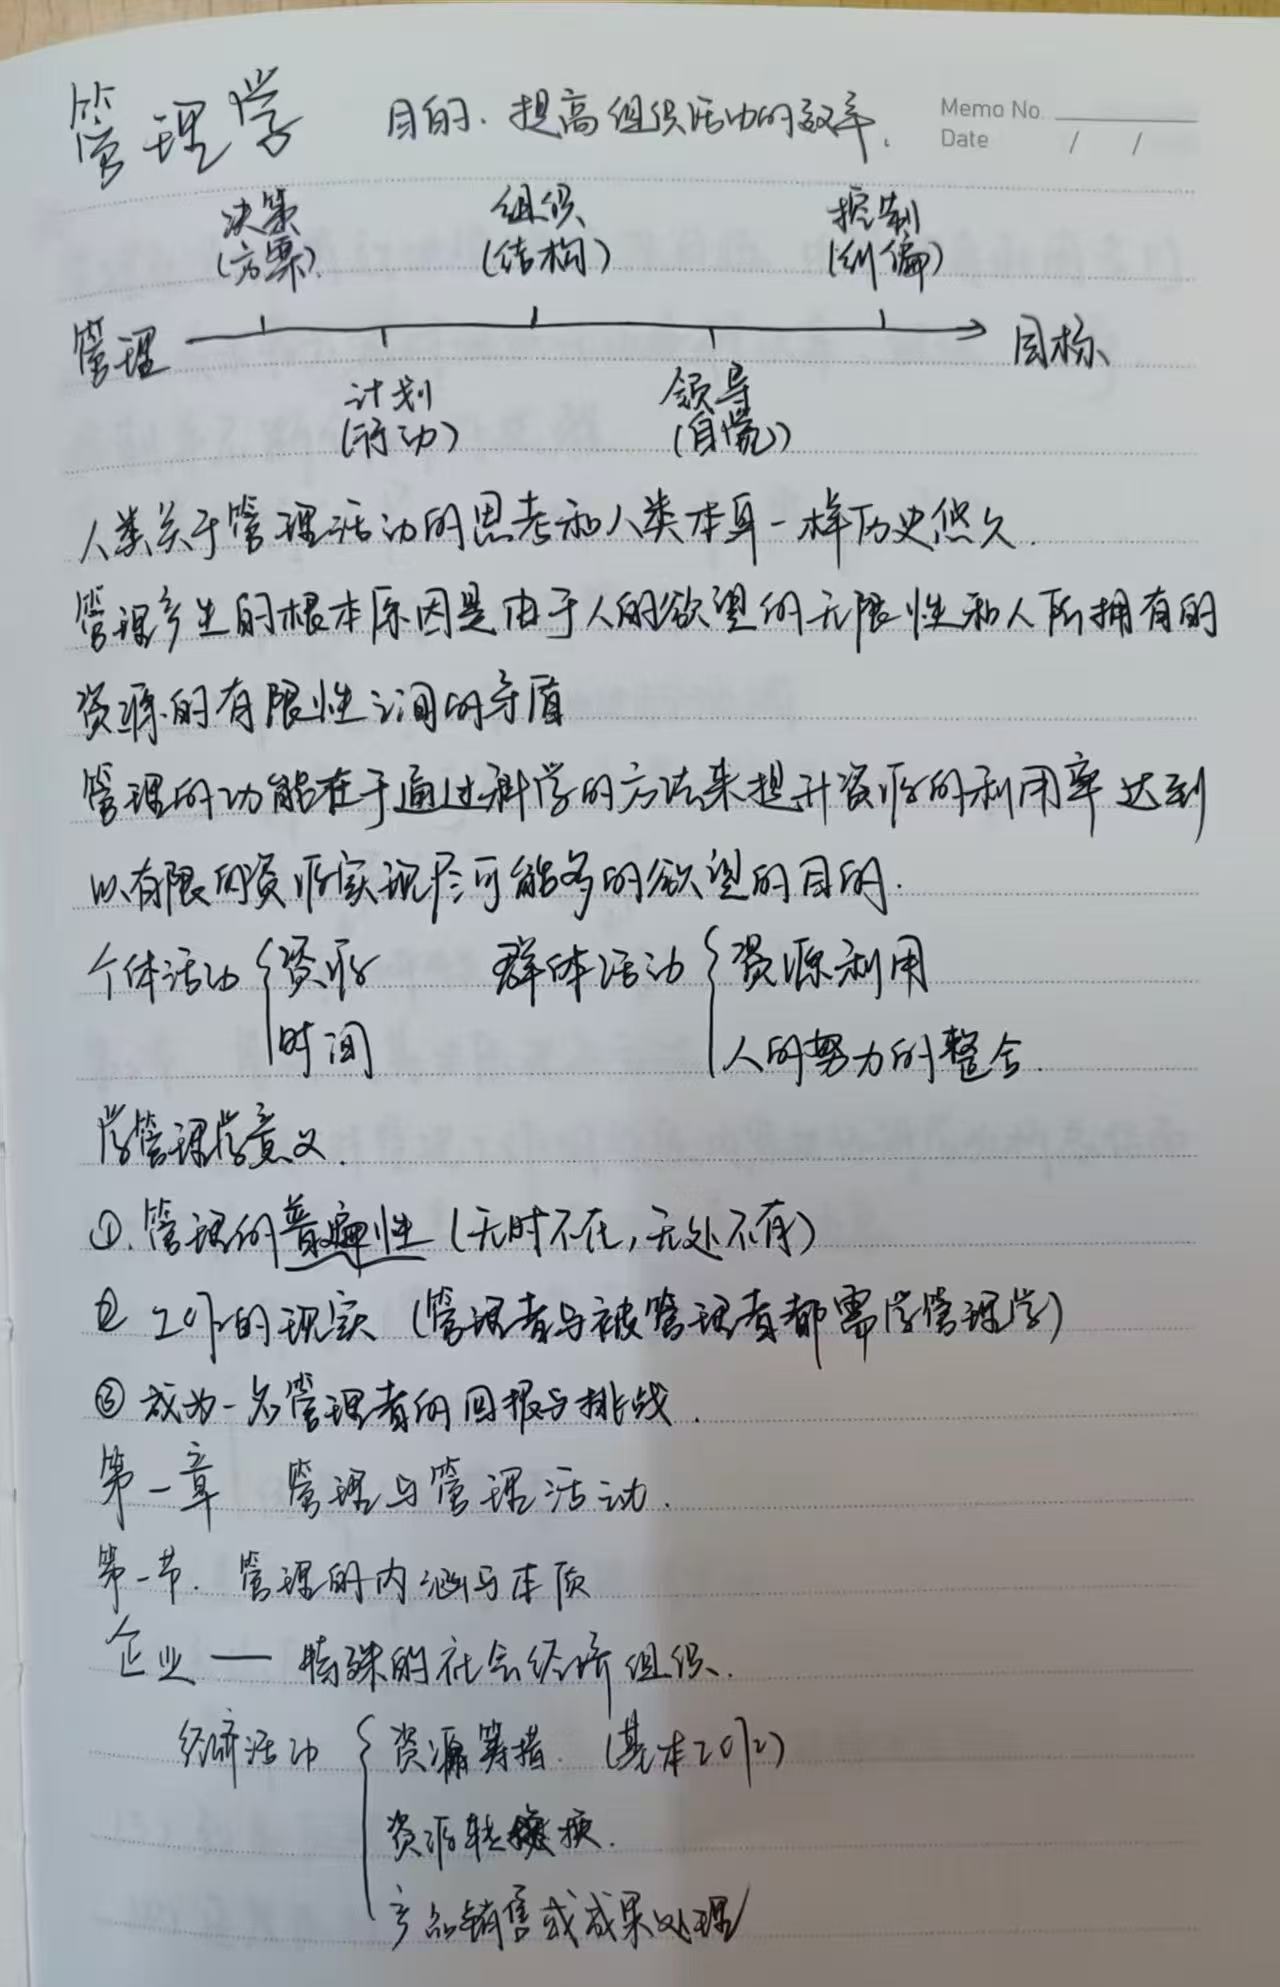 管理学 目的.提高组织活动的效率.
Memo No.
Date / /
决策 组织 控制
(方案) (结构) (纠偏)
管理 目标
计划 领导
(行动) (自觉)
人类关于管理活动的思考和人类本身一样历史悠久.
管理产生的根本原因是由于人的欲望的无限性和人所拥有的
资源的有限性之间的矛盾
管理的功能在于通过科学的方法来提升资源的利用率达到
以有限的资源实现尽可能多的欲望的目的.
个体活动 { 资源 群体活动 { 资源利用
时间 人的努力的整合.
学管理学意义.
①.管理的普遍性(无时不在,无处不有)
② 工作的现实(管理者与被管理者都需学管理学)
③ 成为一名管理者的回报与挑战.
第一章 管理与管理活动.
第一节. 管理的内涵与本质
企业 — 特殊的社会经济组织.
经济活动 { 资源筹措. (基本工作)
资源转换.
产品销售或成果处理